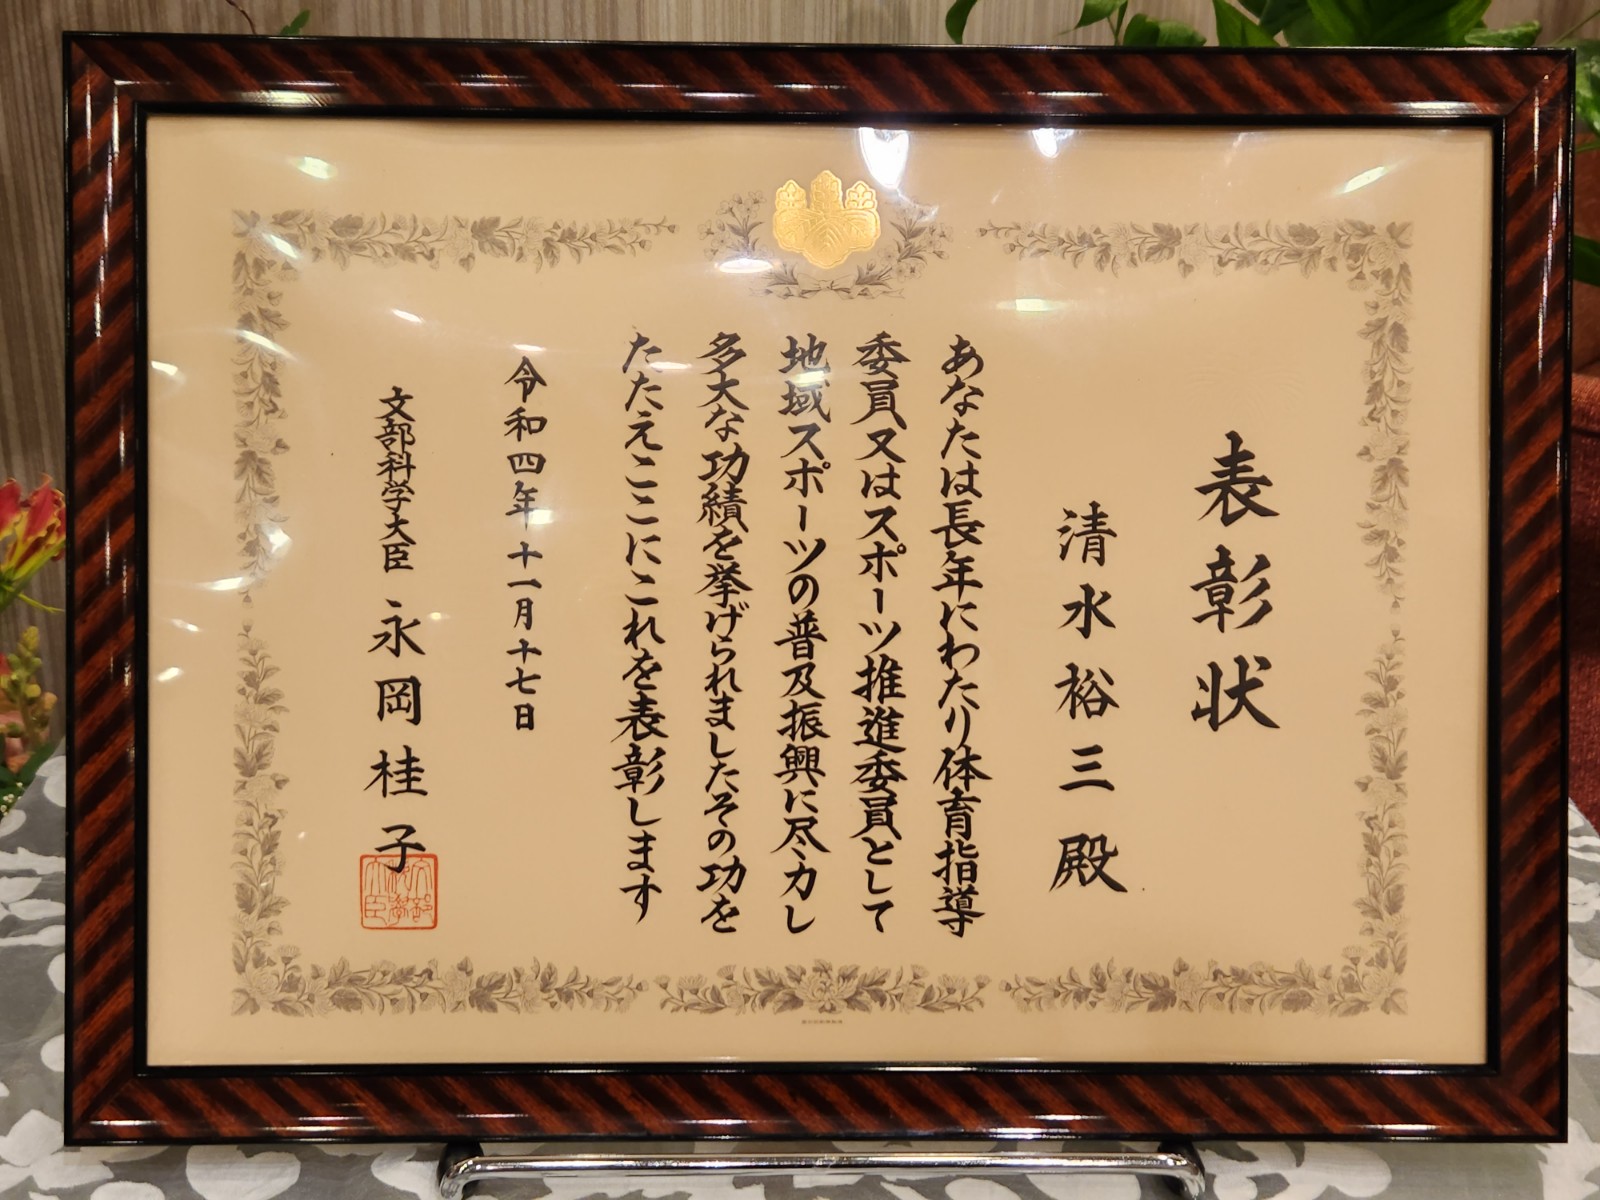 表彰状
清水裕三殿
あなたは長年にわたり体育指導
委員又はスポーツ推進委員として
地域スポーツの普及振興に尽力し
多大な功績を挙げられましたその功を
たたえここにこれを表彰します
令和四年十一月十七日
文部科学大臣 永岡桂子